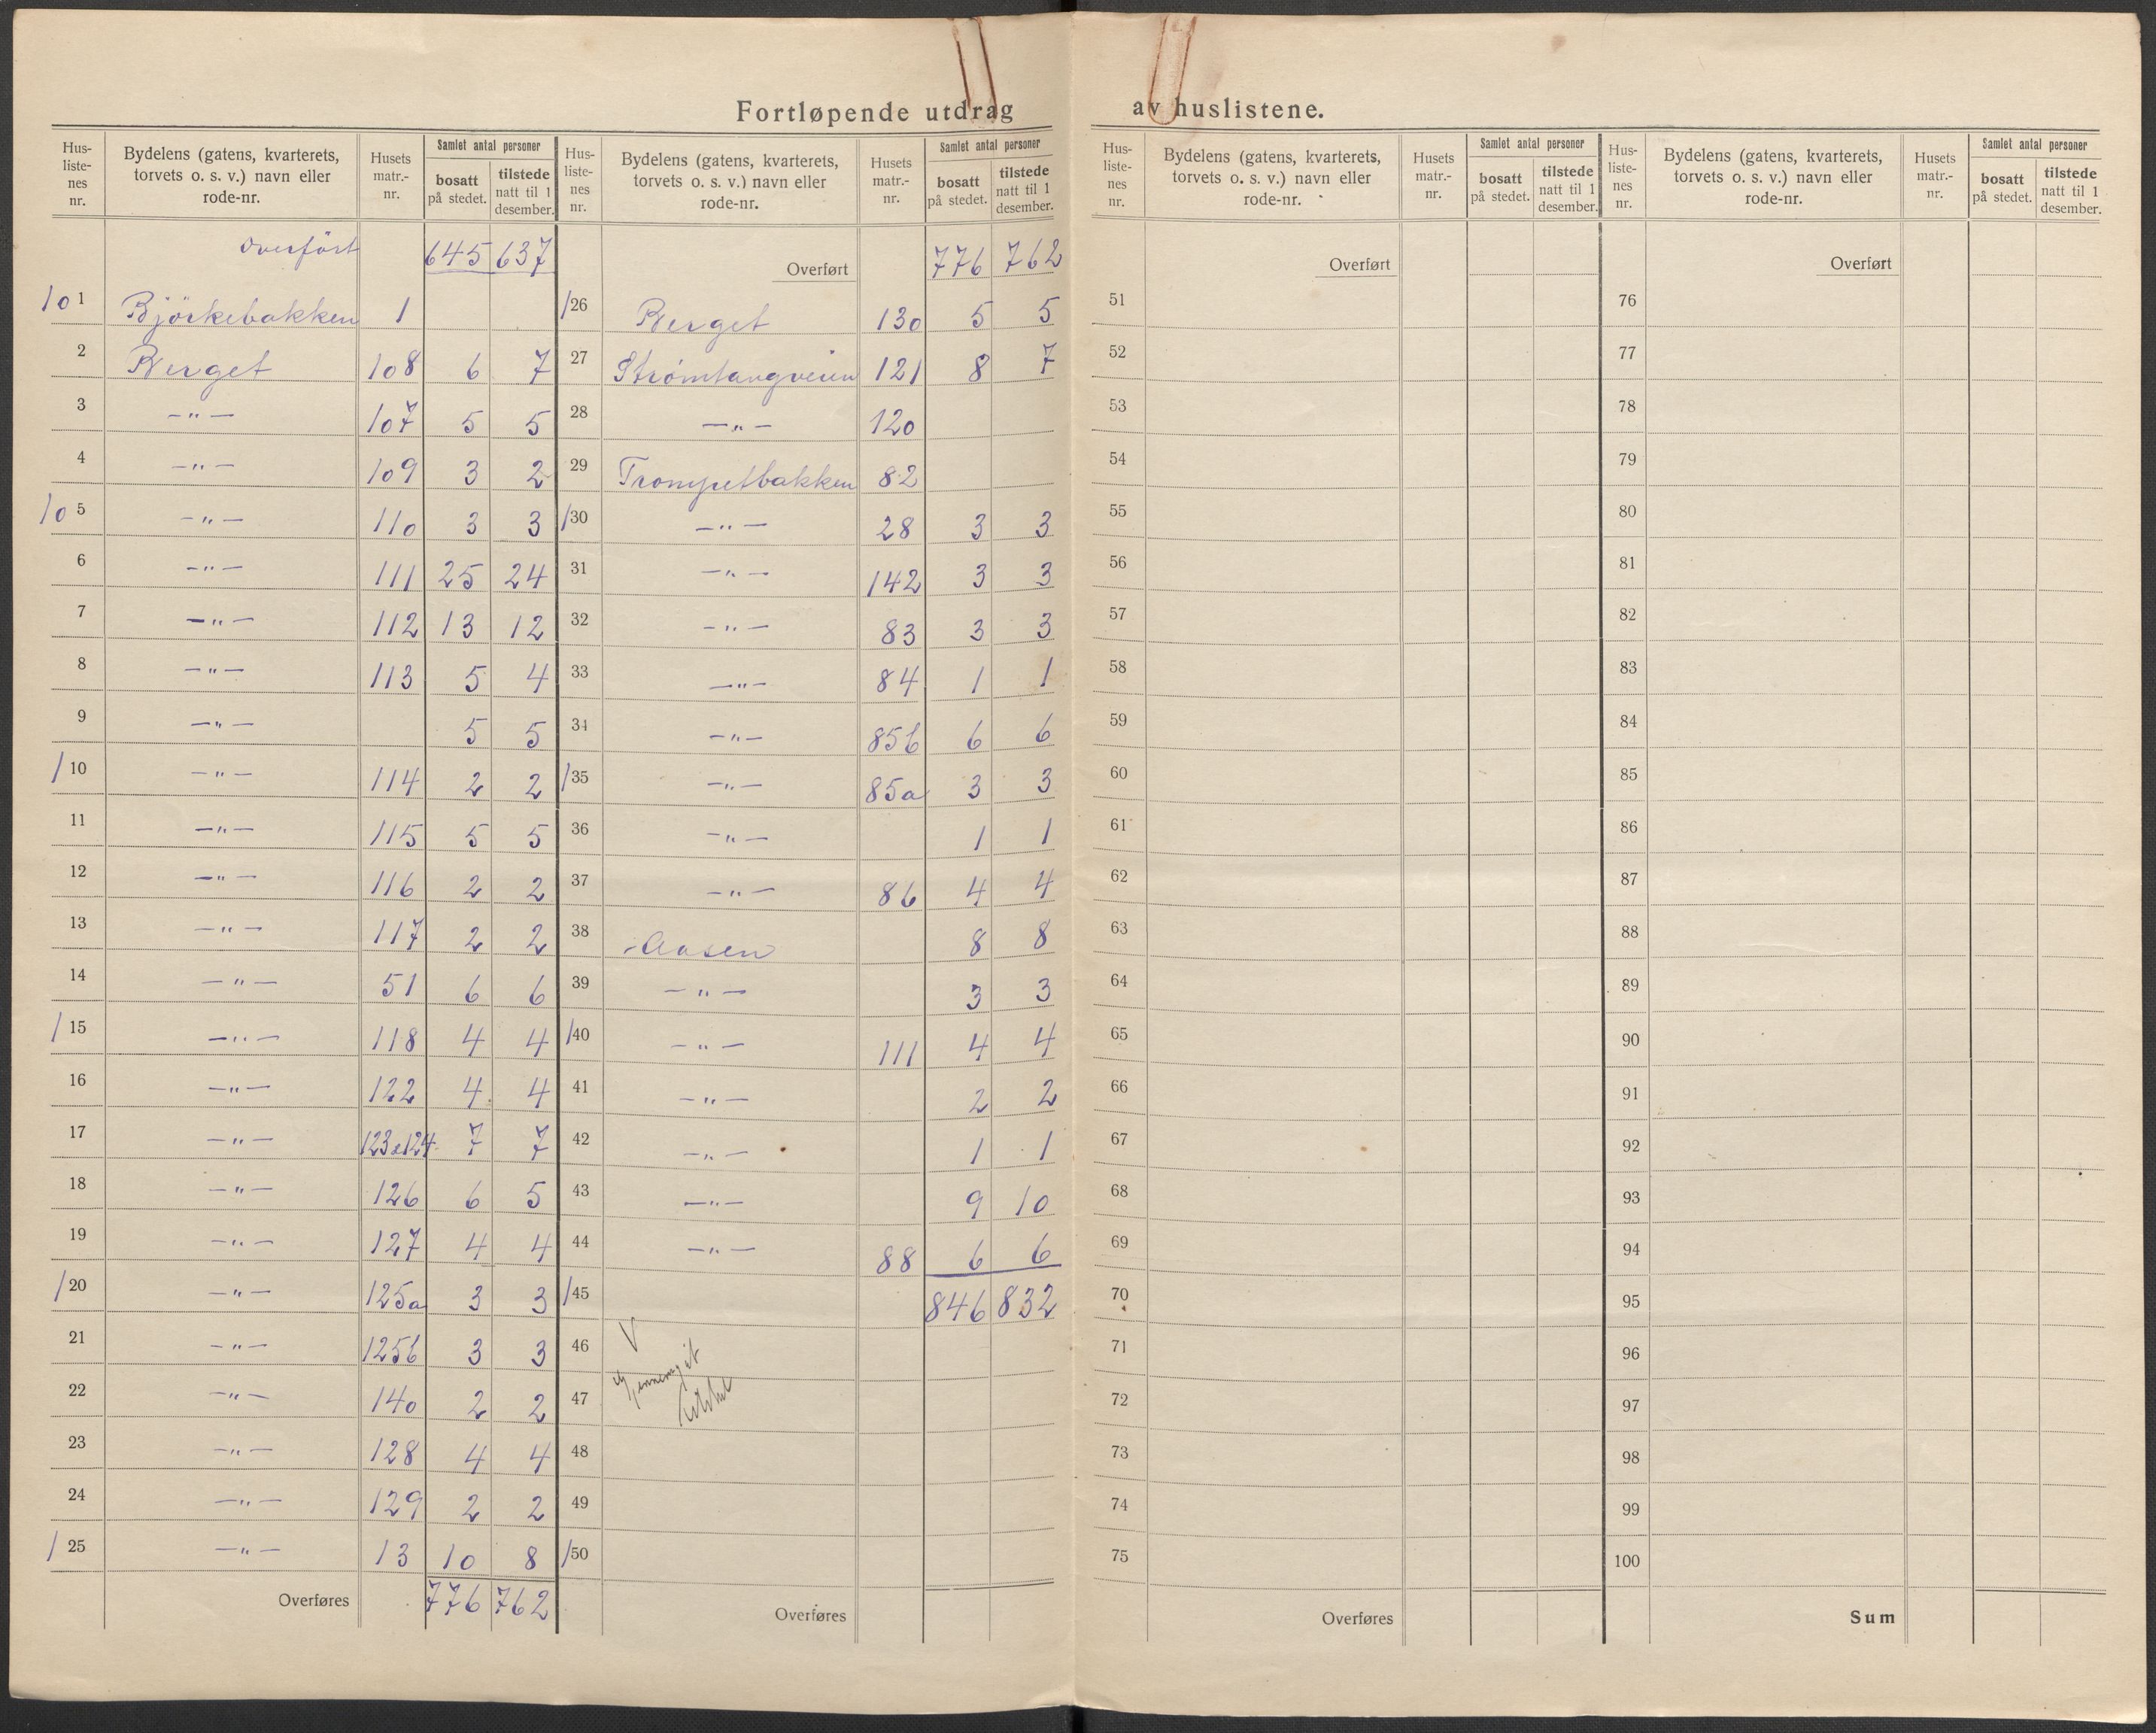 Fortløpende utdrag av huslistene.
Hus-listenes nr. | Bydelens (gatens, kvarterets, torvets o. s. v.) navn eller rode-nr. | Husets matr.-nr. | Samlet antal personer bosatt på stedet. | tilstede natt til 1 desember.
overført 645 637
101 Björkebakken 1
2 Berget 108 6 7
3 —"— 107 5 5
4 —"— 109 3 2
105 —"— 110 3 3
6 —"— 111 25 24
7 —"— 112 13 12
8 —"— 113 5 4
9 —"— 5 5
/10 —"— 114 2 2
11 —"— 115 5 5
12 —"— 116 2 2
13 —"— 117 2 2
14 —"— 51 6 6
/15 —"— 118 4 4
16 —"— 122 4 4
17 —"— 123 & 124 7 7
18 —"— 126 6 5
19 —"— 127 4 4
/20 —"— 125a 3 3
21 —"— 125b 3 3
22 —"— 140 2 2
23 —"— 128 4 4
24 —"— 129 2 2
/25 —"— 13 10 8
Overføres 776 762
Hus-listenes nr. | Bydelens (gatens, kvarterets, torvets o. s. v.) navn eller rode-nr. | Husets matr.-nr. | Samlet antal personer bosatt på stedet. | tilstede natt til 1 desember.
Overført 776 762
/26 Berget 130 5 5
27 Strømtangveien 121 8 7
28 —"— 120
29 Trompetbakken 82
/30 —"— 28 3 3
31 —"— 142 3 3
32 —"— 83 3 3
33 —"— 84 1 1
34 —"— 85b 6 6
/35 —"— 85a 3 3
36 —"— 1 1
37 —"— 86 4 4
38 Aasen 8 8
39 —"— 3 3
/40 —"— 111 4 4
41 —"— 2 2
42 —"— 1 1
43 —"— 9 10
44 —"— 88 6 6
/45 846 832
46 V
Gjennemgåt
47
48
49
/50
Overføres
Hus-listenes nr. | Bydelens (gatens, kvarterets, torvets o. s. v.) navn eller rode-nr. | Husets matr.-nr. | Samlet antal personer bosatt på stedet. | tilstede natt til 1 desember.
Overført
51
52
53
54
55
56
57
58
59
60
61
62
63
64
65
66
67
68
69
70
71
72
73
74
75
Overføres
Hus-listenes nr. | Bydelens (gatens, kvarterets, torvets o. s. v.) navn eller rode-nr. | Husets matr.-nr. | Samlet antal personer bosatt på stedet. | tilstede natt til 1 desember.
Overført
76
77
78
79
80
81
82
83
84
85
86
87
88
89
90
91
92
93
94
95
96
97
98
99
100
Sum